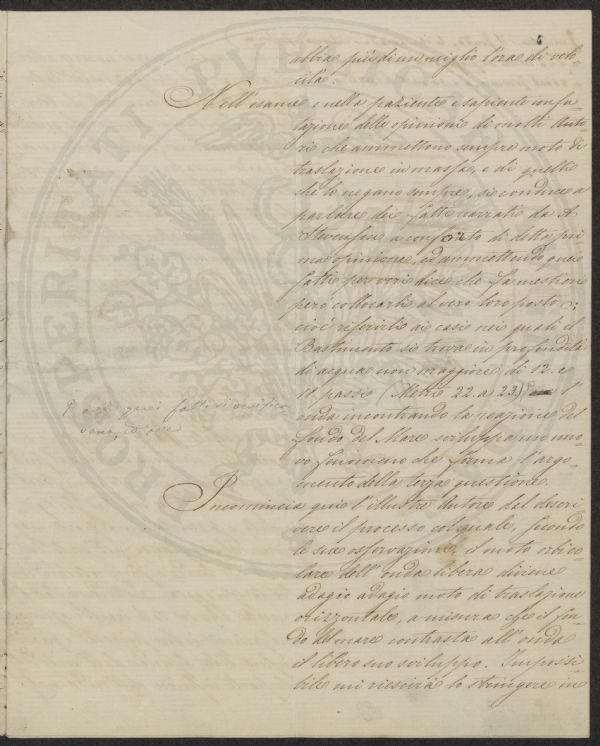 6
abbia più di un miglio l'ora di velo-
cità.
Nell'esame, e nella paziente e sapiente confu-
tazione delle opinioni di molti Auto-
ri che ammettono sempre moto di
traslazione in massa, e di quelli
che lo negano sempre, si conduce a
parlare dei fatti narrati da A
Stevenson a conforto di detta pri-
ma opinione, ed ammettendo quei
fatti per veri dice che fa mestieri
però collocarli al vero loro posto
cioè riferirli ai casi nei quali il
Bastimento si trova in profondità
di acqua non maggiore di 12. e
18 passi (Metri 22. a 23.) l'
onda incontrando la reazione del
fondo del Mare sviluppa un nuo-
vo fenomeno che forma l'argo-
mento della terza questione.
quei fatti si verifica
vano, ed ove
Incomincia quì l'illustre Autore dal descri-
vere il processo col quale, secondo
le sue osservazioni, il moto orbico-
lare dell'onda libera diviene
adagio adagio moto di traslazione
orizzontale, a misura che il fon-
do del mare contrasta all'onda
il libero suo sviluppo. Impossi-
bile mi riescirà lo stringere in
PROSPERITATI PUBLICAE